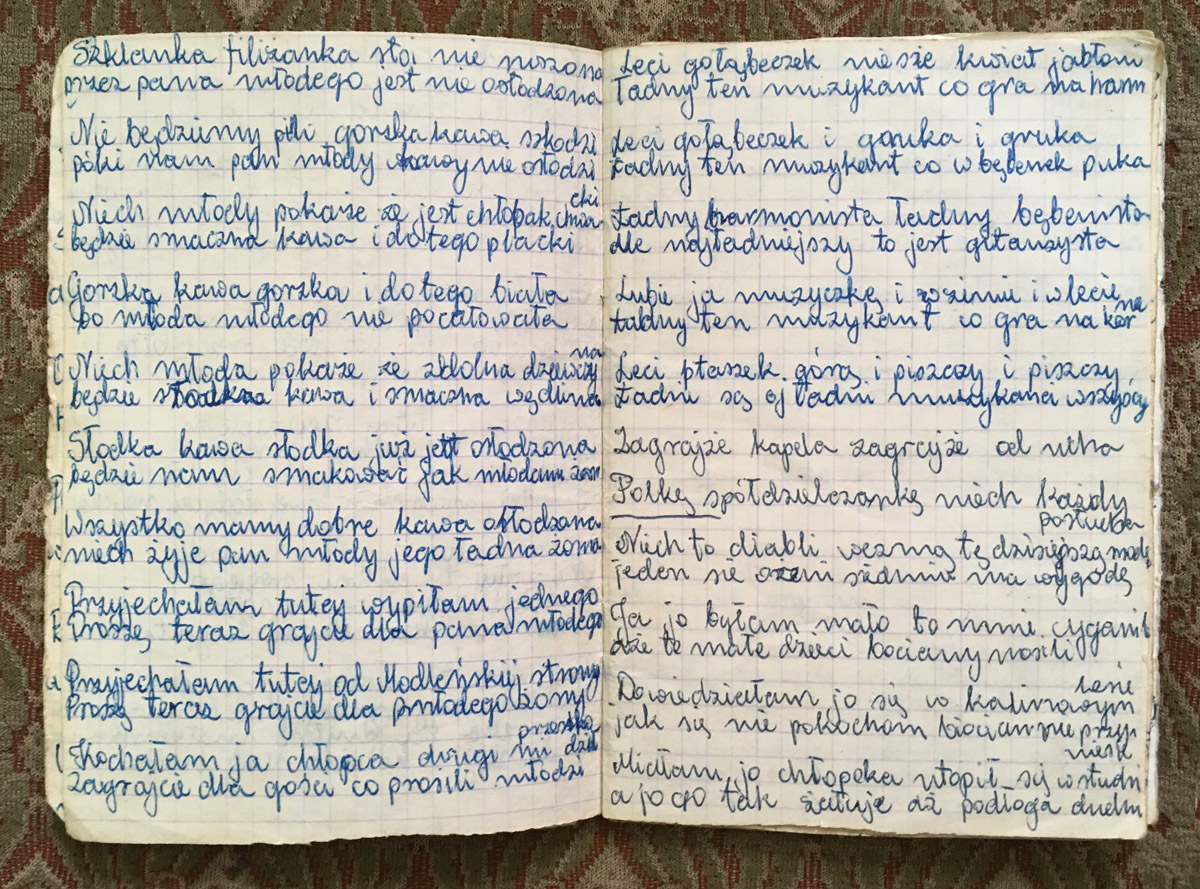 Szklanka filiżanka stoi nie ruszona
przez pana młodego jest nie osłodzona
Nie będziemy pili gorzka kawa szkodzi
póki nam pan młody kawy nie osłodzi
Niech młody pokaże że jest chłopak chwacki
będzie smaczna kawa i do tego placki
Gorzka kawa gorzka i do tego biała
bo młoda młodego nie pocałowała
Niech młoda pokaże że zdolna dziewczyna
będzie słodka kawa i smaczna wędlina
Słodka kawa słodka już jest osłodzona
będzie nam smakować jak młodemu żona
Wszystko mamy dobre kawa osłodzona
niech żyje pan młody jego ładna żona
Przyjechałam tutej wypiłam jednego
Proszę teraz grajcie dla pana młodego
Przyjechałam tutej od Modleńskiej strony
Proszę teraz grajcie dla młodego żony
Kochałam ja chłopca drugi mi przeszka dzał
Zagrajcie dla gości co prosili młodzi
Leci gołąbeczek niesie kwiat jabłoni
Ładny ten muzykant co gra na harm
Leci gołąbeczek i gruka i gruka
Ładny ten muzykant co w bębenek puka
Ładny harmonista ładny bębenista
ale najładniejszy to jest gitarzysta
Lubie ja muzyczkę i w zimie i w lecie
Ładny ten muzykant co gra na kornecie
Leci ptaszek górą i piszczy i piszczy
Ładni są oj ładni muzykana wszyscy
Zagrajże kapela zagrajże od ucha
Polkę spółdzielczankę niech każdy posłucha
Niech to diabli wezmą tę dzisiejszą modę
jeden sie ożeni siedmiu ma wygodę
Ja jo byłam mało to mnie cyganili
aże te małe dzieci bociany nosili
Dowiedziałam jo się w kalinowym lesie
jak się nie pokocham bocian nie przyniesie
Miałam jo chłopoka utopił się w studni
a jo go tak żałuje aż podłoga dudni